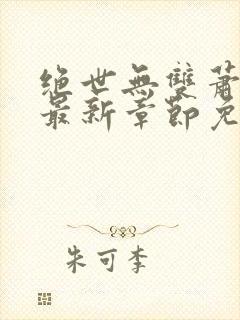 绝世無雙蕭
最新章節免
朱可李